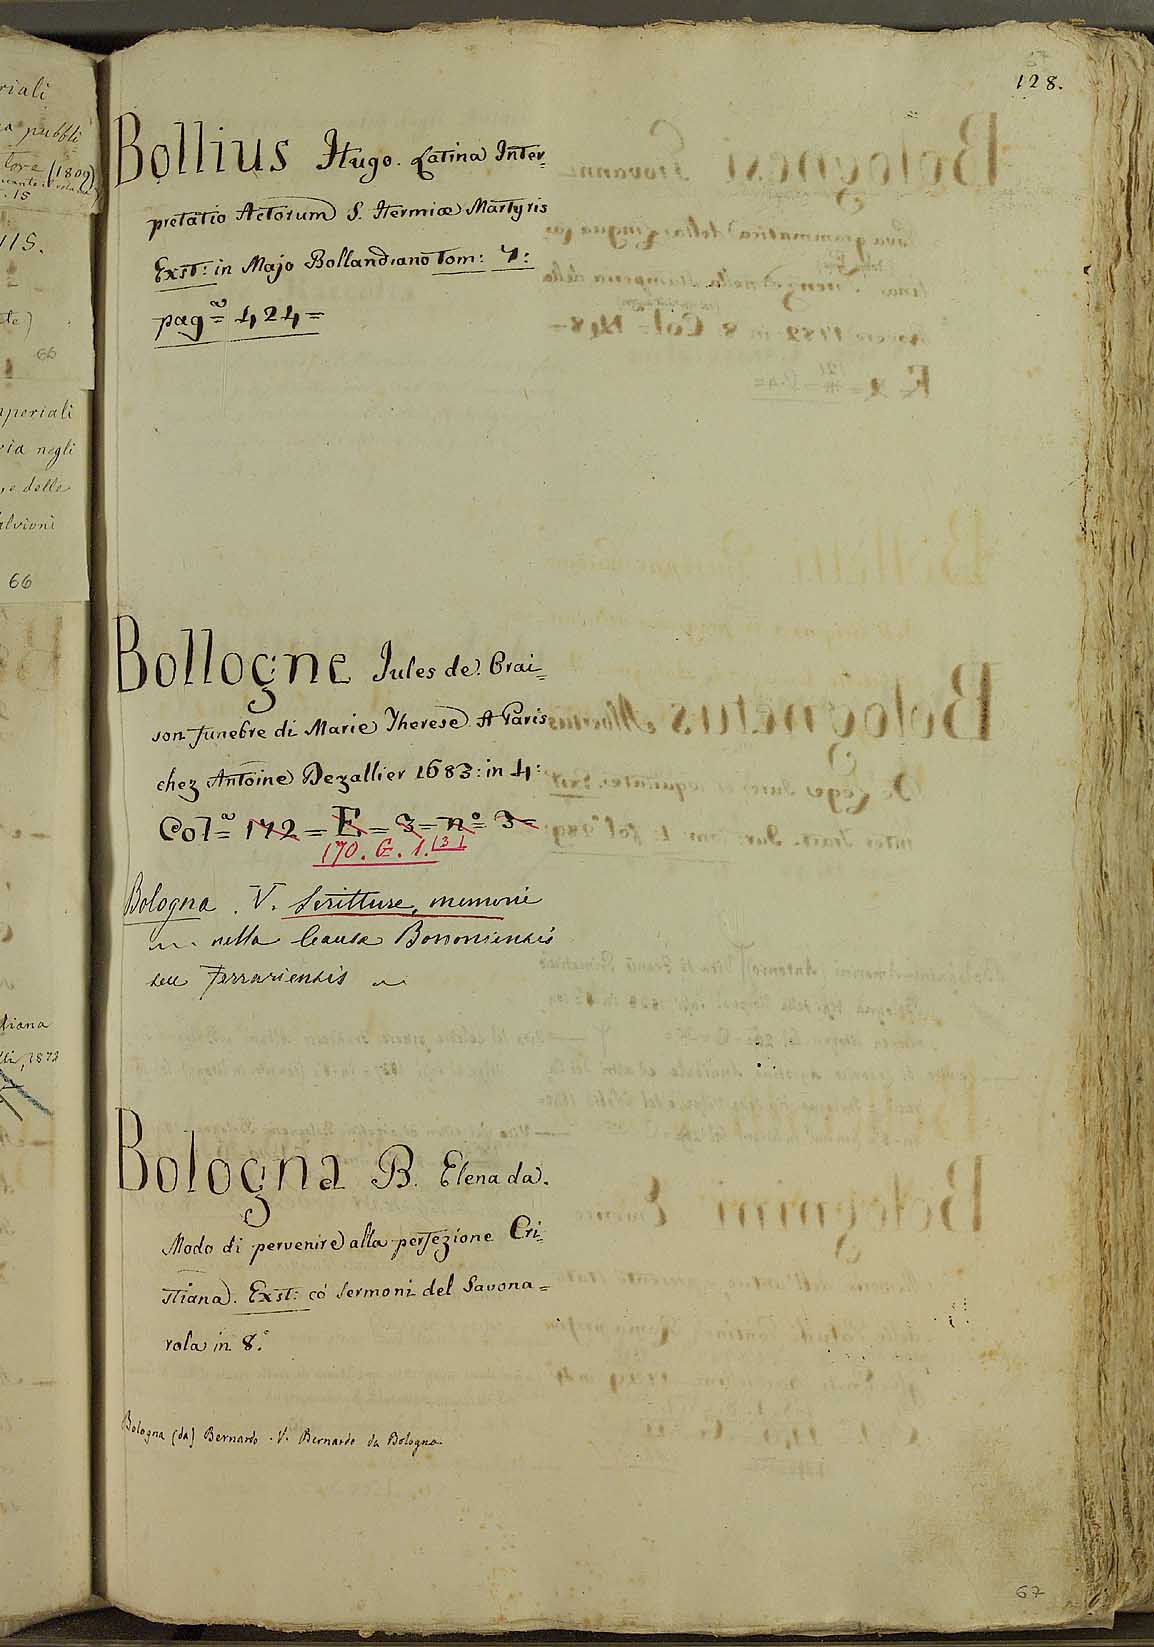 128.
Bollius Hugo. Latina Inter=
pretatio Actorum S. Hermiæ Martyris
Exst: in Majo Bollandiano tom: 7:
pag.ᵃ = 424 =
Bollogne Jules de. Orai=
son funebre di Marie Therese A Paris
chez Antoine Dezallier 1683: in 4:
Col.ᵃ = 172 = E = 3 = nº = 3 =
170. G. 1. (3)
Bologna . V. Scritture, memorie
nella Causa Bononiensis
seu Ferrariensis
Bologna B. Elena da.
Modo di pervenire alla perfezione Cri=
stiana. Exst: co' Sermoni del Savona=
rola in 8.º
Bologna (da) Bernardo . V. Bernardo da Bologna
67
riali
pubbli
tore (1809)
15
115.
66
periali
ria negli
e delle
alvioni
66
diana
1873